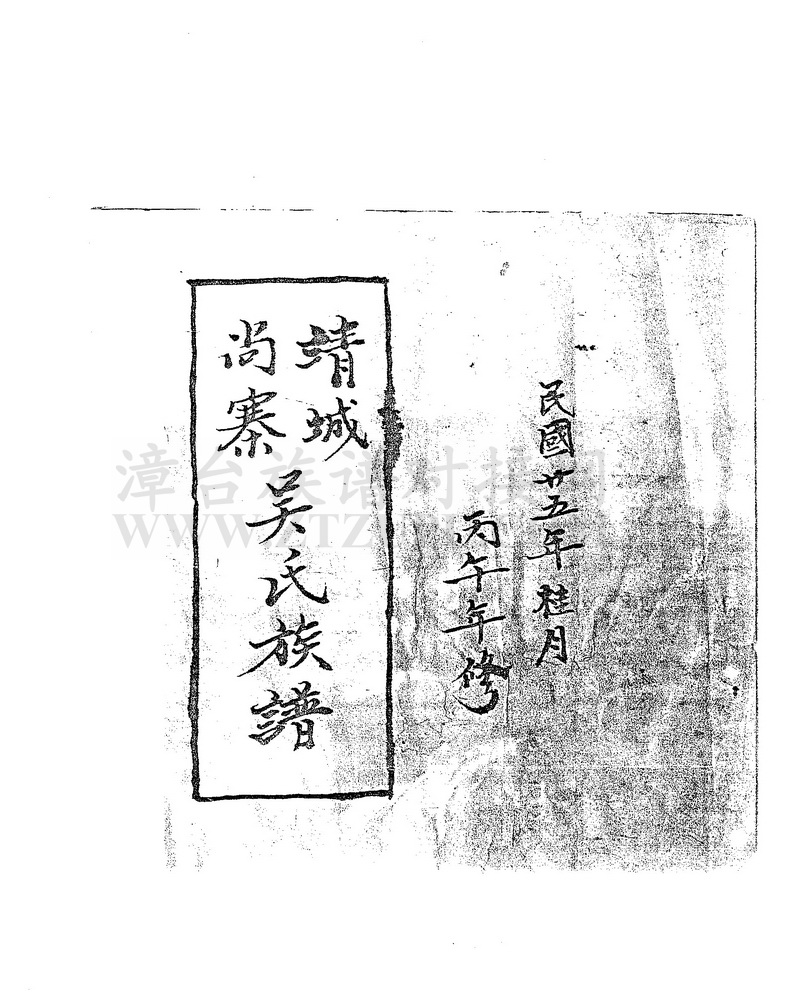 民國廿五年桂月
丙午年修
靖城
尚寨
吴氏族譜
漳台族谱对接网